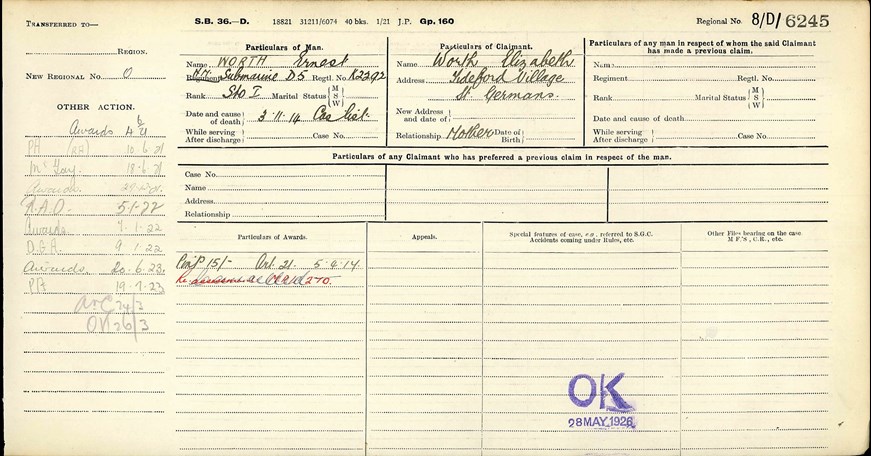 TRANSFERRED TO—
REGION.
NEW REGIONAL NO. O
OTHER ACTION.
Awards 4 6/21
PH (RA) 10.6.21
18.6.21
Awards
R.A.O. 5.1.22
Awards 7.1.22
D.G.A. 9.1.22
Awards. 20.6.23.
19.7.23
24/3
26/3
S.B. 36.—D. 18821 31211/6074 40 bks. 1/21 J.P. Gp. 160
Regional No. 8/D/6245
Particulars of Man.
Name WORTH Ernest
Regiment Submarine D5 Regtl. No. K2292
Rank Sto I Marital Status { M S W
Date and cause of death } 3.11.14 Cas list.
While serving
After discharge } Case No.
Particulars of Claimant.
Name Worth Elizabeth
Address Tideford Village
St. Germans.
New Address and date of }
Relationship Mother Date of Birth }
Particulars of any man in respect of whom the said Claimant has made a previous claim.
Name
Regiment Regtl. No.
Rank Marital Status { M S W
Date and cause of death }
While serving
After discharge } Case No.
Particulars of any Claimant who has preferred a previous claim in respect of the man.
Case No.
Name
Address.
Relationship
Particulars of Awards.
15/- Art. 21. 5.4.17
Appeals.
Special features of case, e.g., referred to S.G.C. Accidents coming under Rules, etc.
Other Files bearing on the case. M F.'S, C.R., etc.
OK
28 MAY 1926